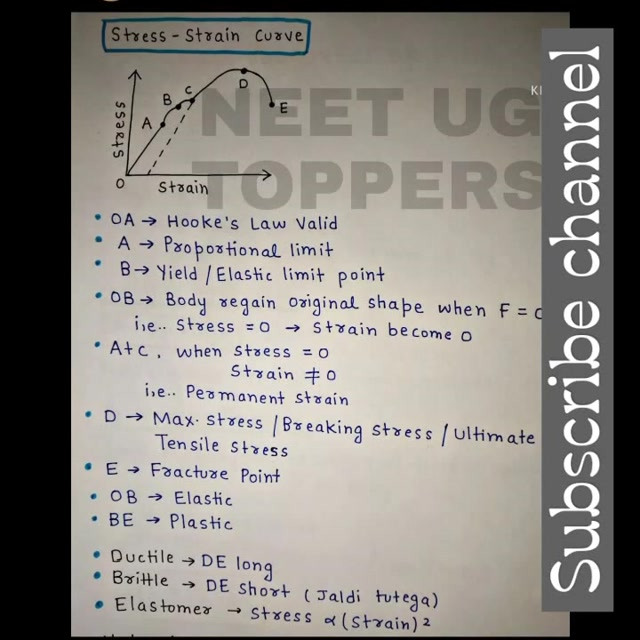 Stress-Strain Curve
Stress
A
B
C
D
E
O
Strain
NEET UG
TOPPERS
• OA → Hooke's Law Valid
• A → Proportional limit
• B → Yield / Elastic limit point
• OB → Body regain original shape when F =
i,e.. Stress = 0 → Strain become 0
• At C, when stress = 0
Strain ≠ 0
i,e.. Permanent strain
• D → Max. stress / Breaking stress / Ultimate
Tensile stress
• E → Fracture Point
• OB → Elastic
• BE → Plastic
• Ductile → DE long
• Brittle → DE short (Jaldi tutega)
• Elastomer → stress ∝ (strain)2
Subscribe channel